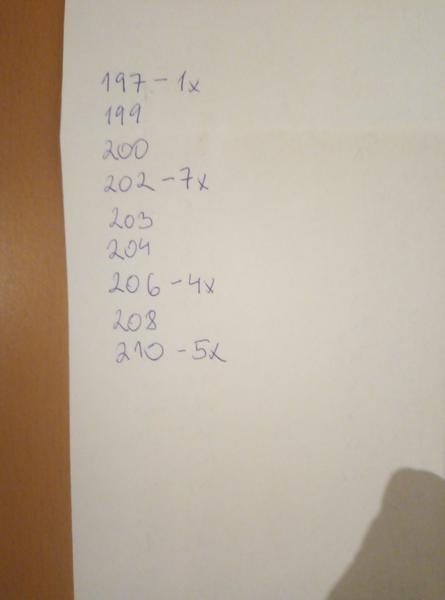 197 - 1x
199
200
202 - 7x
203
204
206 - 4x
208
210 - 5x